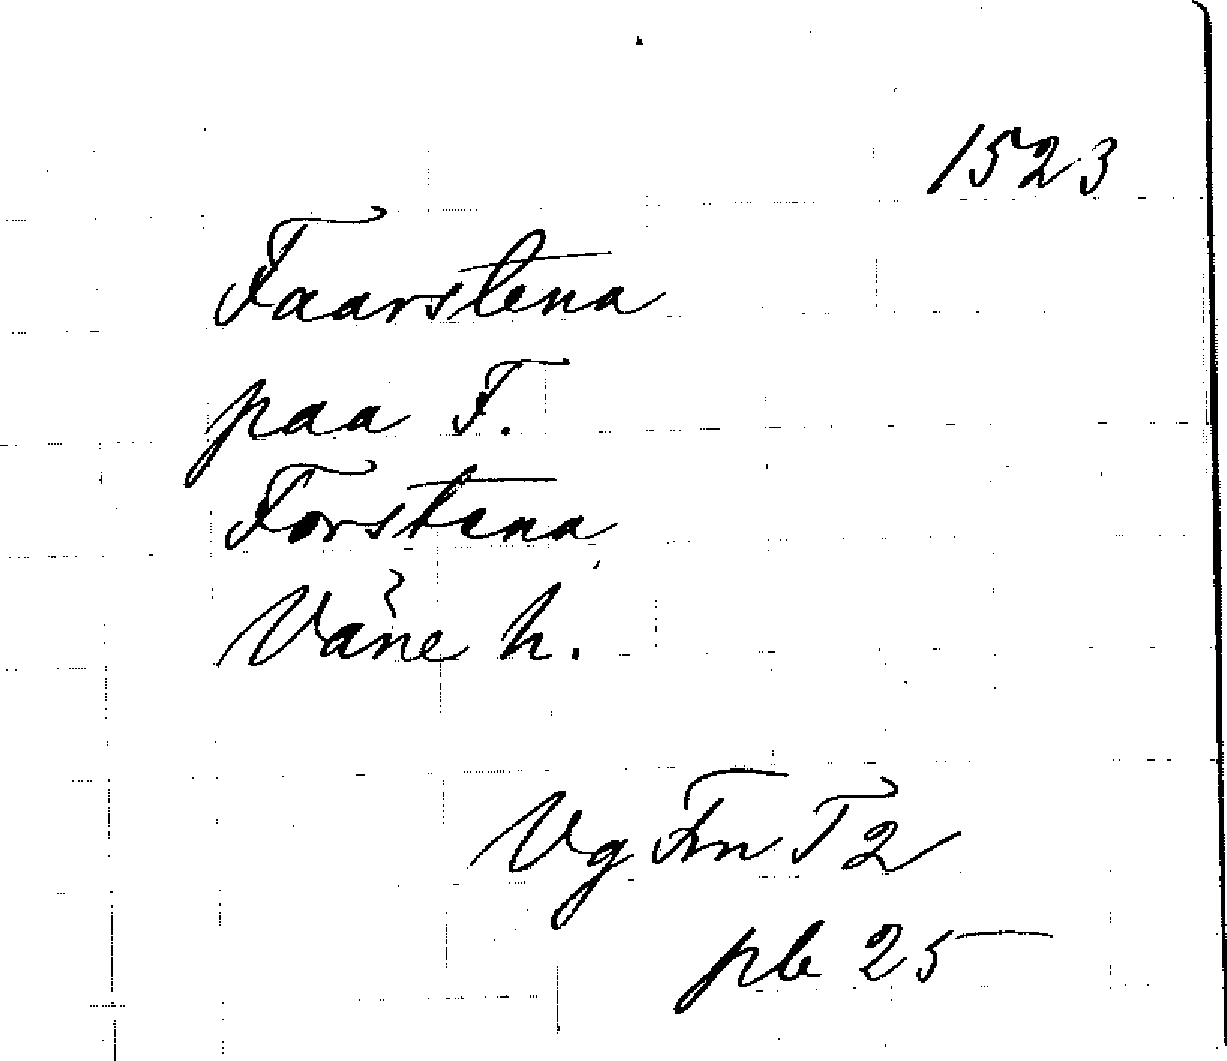 1523
Faarstena
paa F.
Forstena
Väne h.
Vg Fm T 2
pb 25